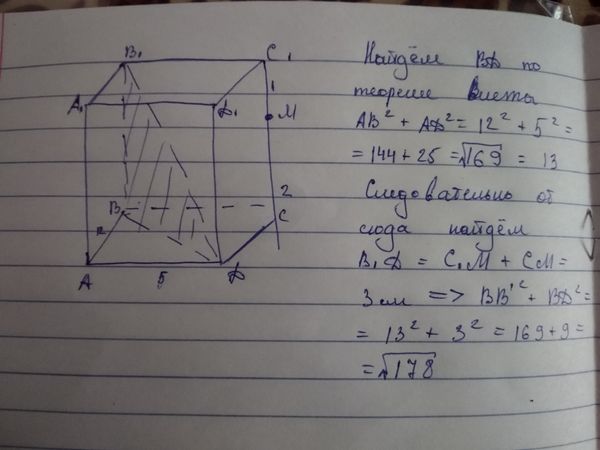 B₁
C₁
1
A₁
D₁
M
B
2
C
A
5
D
Найдём BD по
теореме Виеты
AB² + AD² = 12² + 5² =
= 144 + 25 = √169 = 13
Следовательно от
сюда найдём
B₁D = C₁M + CM =
3 см => BB₁² + BD² =
= 13² + 3² = 169 + 9 =
= √178